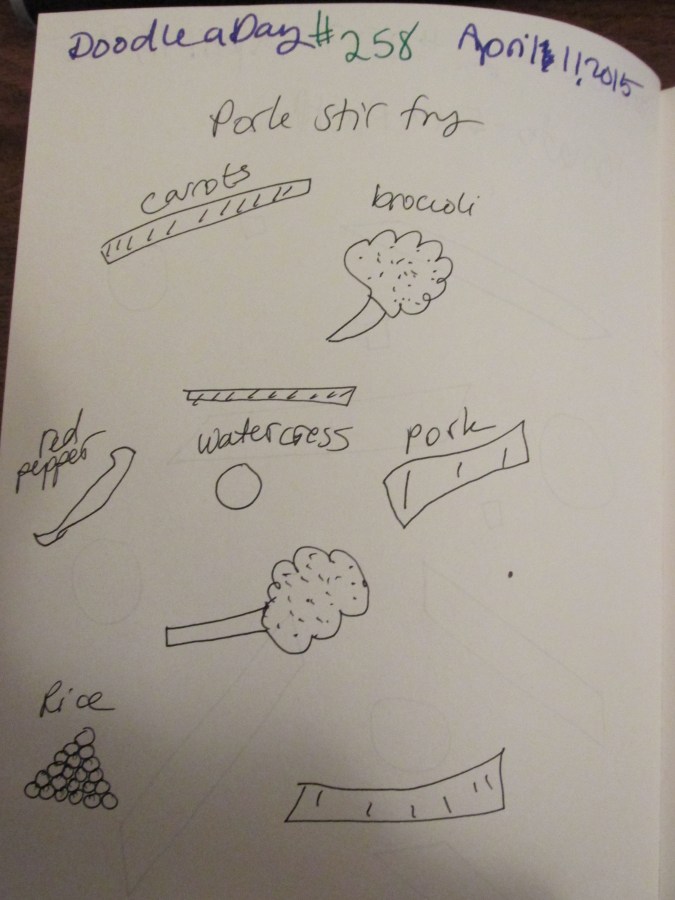 Doodle a Day #258 April 1, 2015
Pork stir fry
carrots
broccoli
red
pepper
watercress
pork
Rice